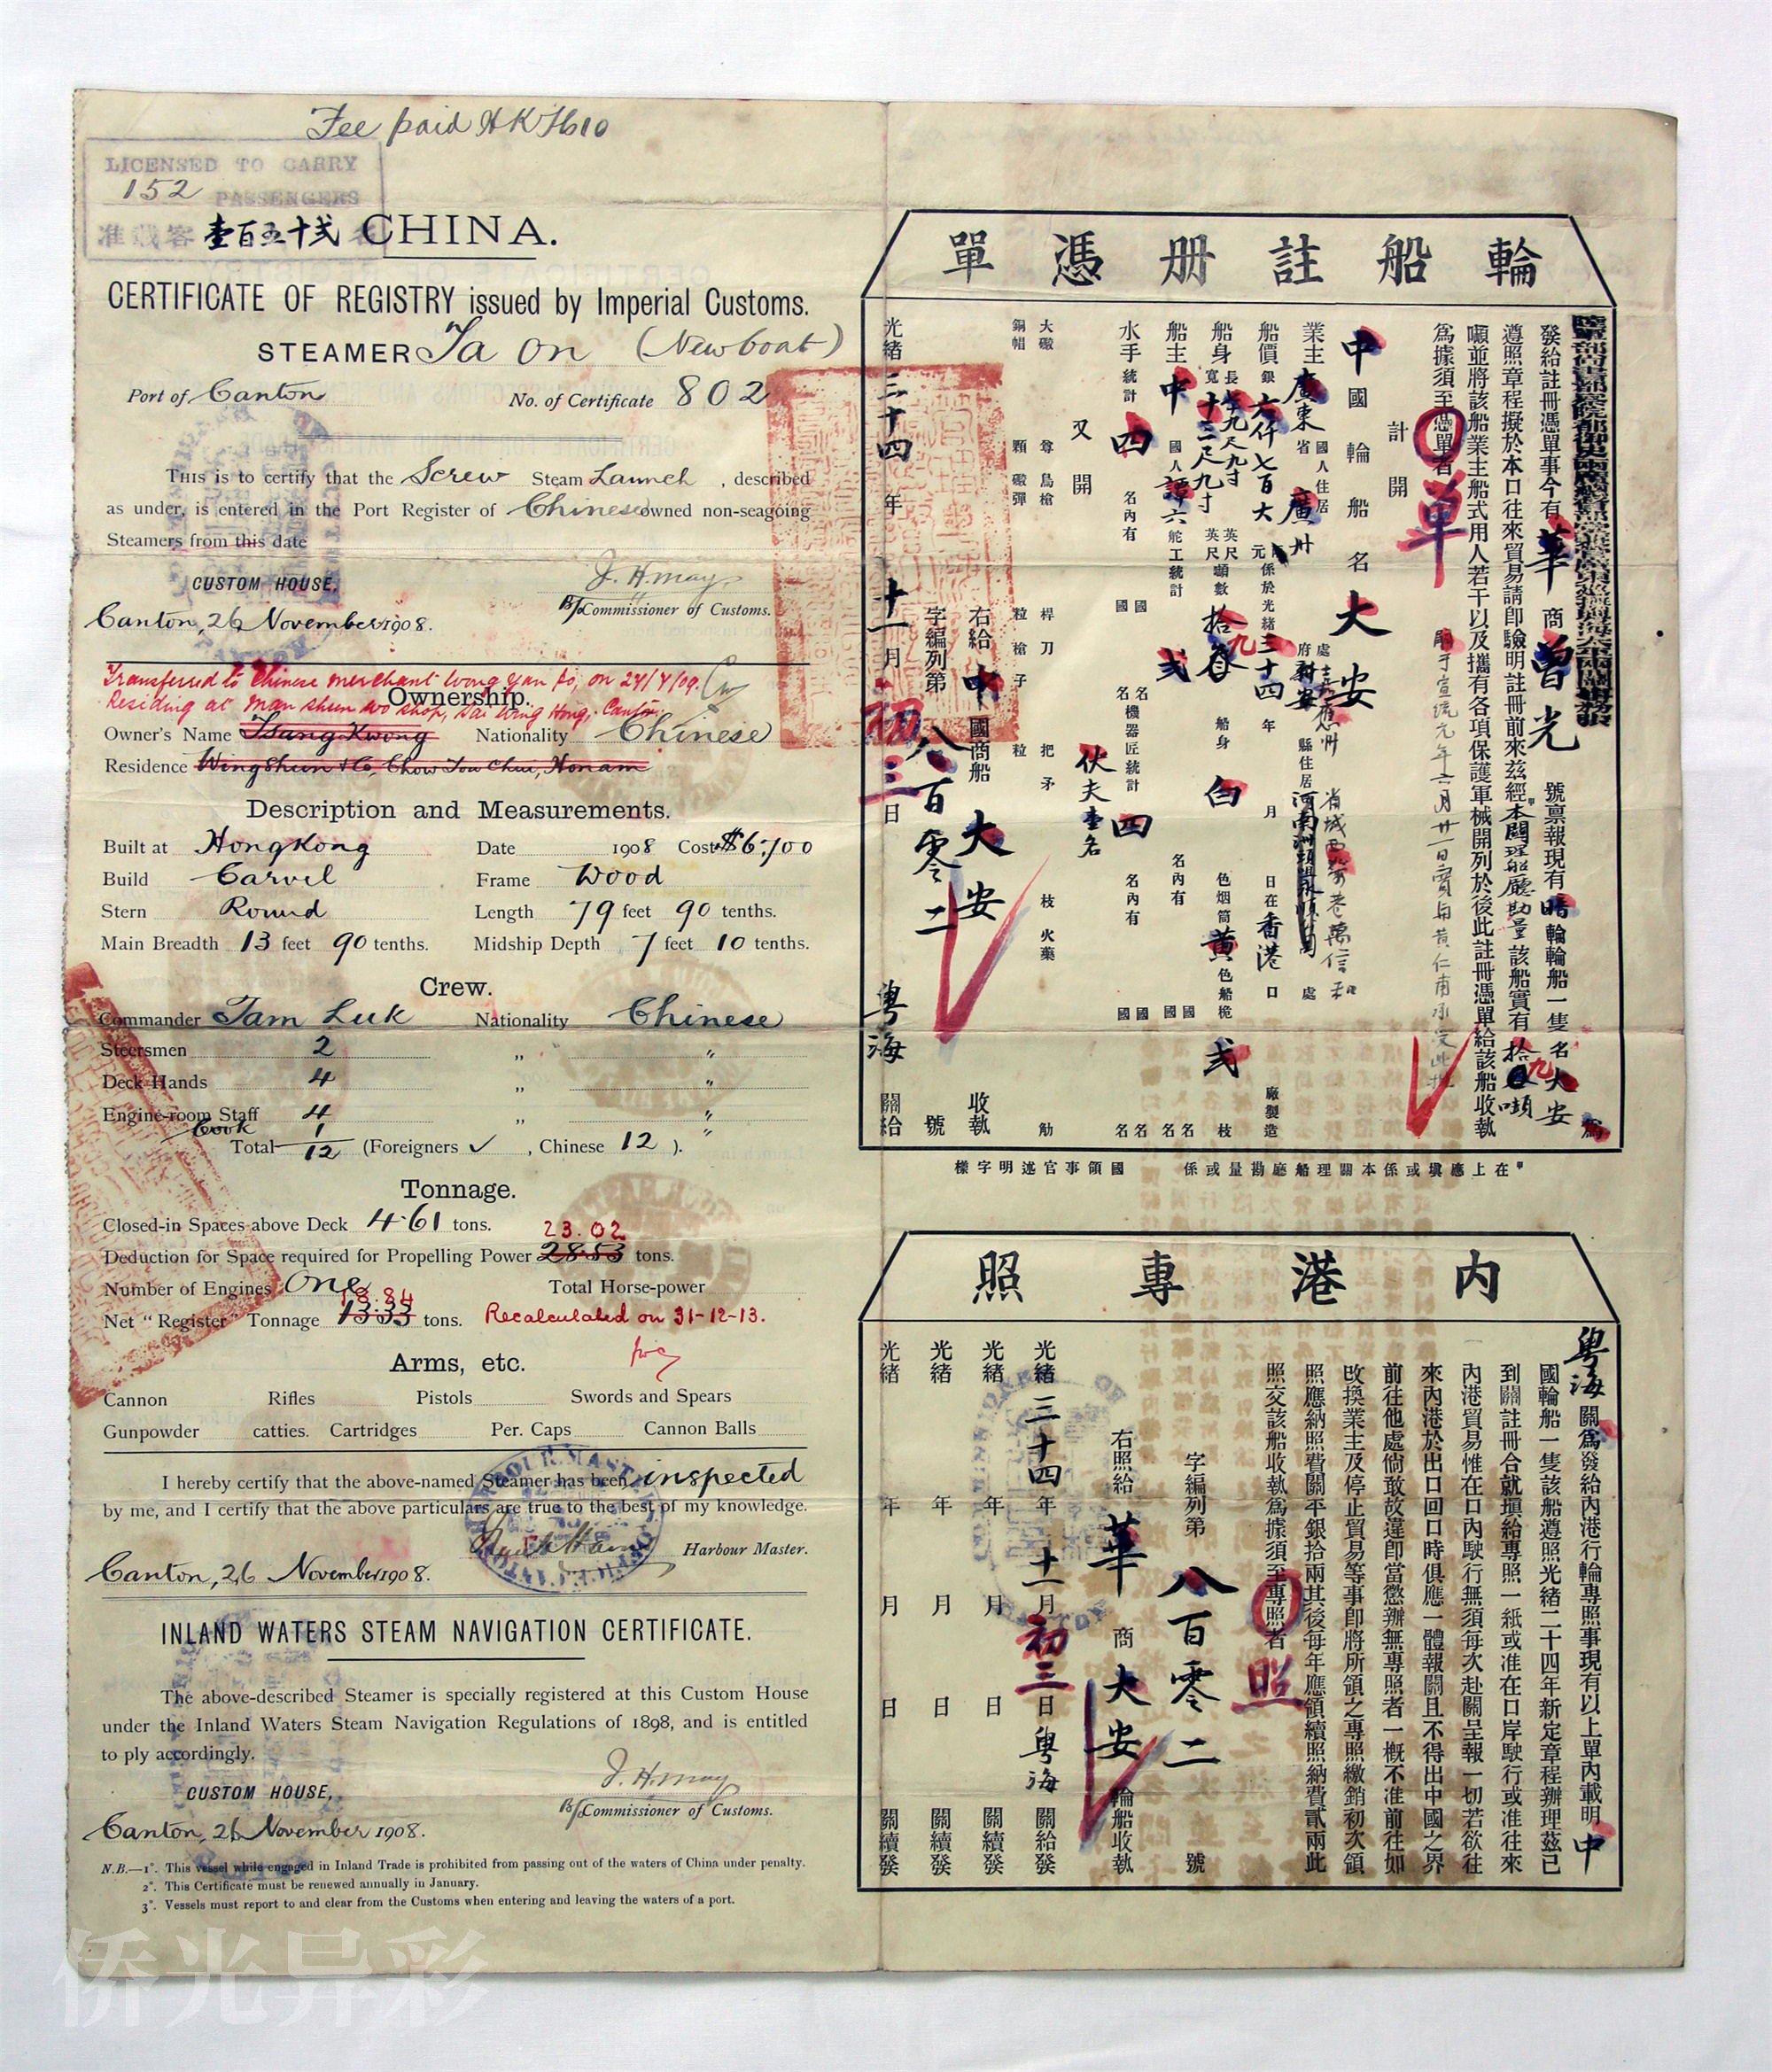 Fee paid
LICENSED TO CARRY
152 PASSENGERS
准載客 壹百五十弍
CHINA.
CERTIFICATE OF REGISTRY issued by Imperial Customs.
STEAMER Ta On (New boat)
Port of Canton No. of Certificate 802
THIS is to certify that the Screw Steam Launch, described
as under, is entered in the Port Register of Chinese owned non-seagoing
Steamers from this date
CUSTOM HOUSE,
J. H. May
Commissioner of Customs.
Canton, 26 November 1908.
Transferred to Chinese merchant Wong Yan Po, on 24/7/09.
Ownership.
Residing at Man Shun Wo shop, Sai Wing Hong, Canton.
Owner's Name Tsang Kwong Nationality Chinese
Residence Wing Shun & Co, Chow Tou Chui, Honam
Description and Measurements.
Built at HongKong Date 1908 Cost $6,700
Build Carvel Frame Wood
Stern Round Length 79 feet 90 tenths.
Main Breadth 13 feet 90 tenths. Midship Depth 7 feet 10 tenths.
Crew.
Commander Tam Luk Nationality Chinese
Steersmen 2 „ "
Deck Hands 4 „ "
Engine-room Staff 4 „ "
Cook 1 "
Total 12 (Foreigners ✓, Chinese 12 ).
Tonnage.
Closed-in Spaces above Deck 4.61 tons.
23.02
Deduction for Space required for Propelling Power 28.53 tons.
Number of Engines One Total Horse-power
18.84
Net "Register" Tonnage 13.33 tons. Recalculated on 31-12-13.
Arms, etc.
Cannon Rifles Pistols Swords and Spears
Gunpowder catties. Cartridges Per. Caps Cannon Balls
I hereby certify that the above-named Steamer has been inspected
by me, and I certify that the above particulars are true to the best of my knowledge.
Harbour Master.
Canton, 26 November 1908.
INLAND WATERS STEAM NAVIGATION CERTIFICATE.
The above-described Steamer is specially registered at this Custom House
under the Inland Waters Steam Navigation Regulations of 1898, and is entitled
to ply accordingly.
CUSTOM HOUSE,
J. H. May
Commissioner of Customs.
Canton, 26 November 1908.
N.B.—1°. This vessel while engaged in Inland Trade is prohibited from passing out of the waters of China under penalty.
2°. This Certificate must be renewed annually in January.
3°. Vessels must report to and clear from the Customs when entering and leaving the waters of a port.
輪船註册憑單
發給註冊憑單事今有華商曾光號禀報現有暗輪輪船一隻名大安
遵照章程擬於本口往來貿易請即驗明註冊前來茲經本關理船廳勘量該船實有拾九噸
噸並將該船業主船式用人若干以及攜有各項保護軍械開列於後此註冊憑單給該船收執
爲據須至憑單者
單
計開
中國輪船名大安
業主廣東省廣州府新安縣住居河南洲頭咀處
國人住居
船價銀六仟七百大元係於光緒三十四年 月 日在香港口 廠製造
船身長七十九尺九寸英尺 寬十三尺九寸英尺噸數拾九 船身白色烟筒黃色船桅弍枝
船主中國人譚六舵工統計弍名內有 國 名 國 名
水手統計四名內有 國 名 國 名機器匠統計四名內有 國 名 國 名
伙夫壹名
又開
大礮 尊鳥槍 桿刀 把矛 枝火藥 觔
銅帽 顆礮彈 粒槍子 粒
右給中國商船大安收執
字編列第八百零二號
光緒三十四年十一月初三日粵海關給
在上應填或係本關理船廳勘量或係 國領事官遂明字樣
內港專照
粵海關爲發給內港行輪專照事現有以上單內載明中
國輪船一隻該船遵照光緒二十四年新定章程辦理茲已
到關註冊合就填給專照一紙或准在口岸駛行或准往來
內港貿易惟在口內駛行無須每次赴關呈報一切若欲往
來內港於出口回口時俱應一體報關且不得出中國之界
前往他處倘敢故違即當懲辦無專照者一概不准前往如
改換業主及停止貿易等事即將所領之專照繳銷初次領
照應納照費關平銀拾兩其後每年應領續照納費貳兩此
照交該船收執爲據須至專照者
照
字編列第八百零二號
右照給華商大安輪船收執
光緒三十四年十一月初三日粵海關給發
光緒 年 月 日 關續發
光緒 年 月 日 關續發
光緒 年 月 日 關續發
侨光异彩